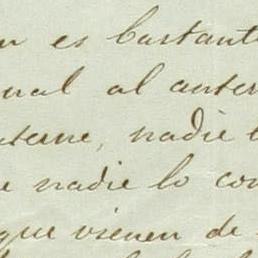 n es bastant
ual al anter
terne, nadie
e nadie lo con
que vienen de